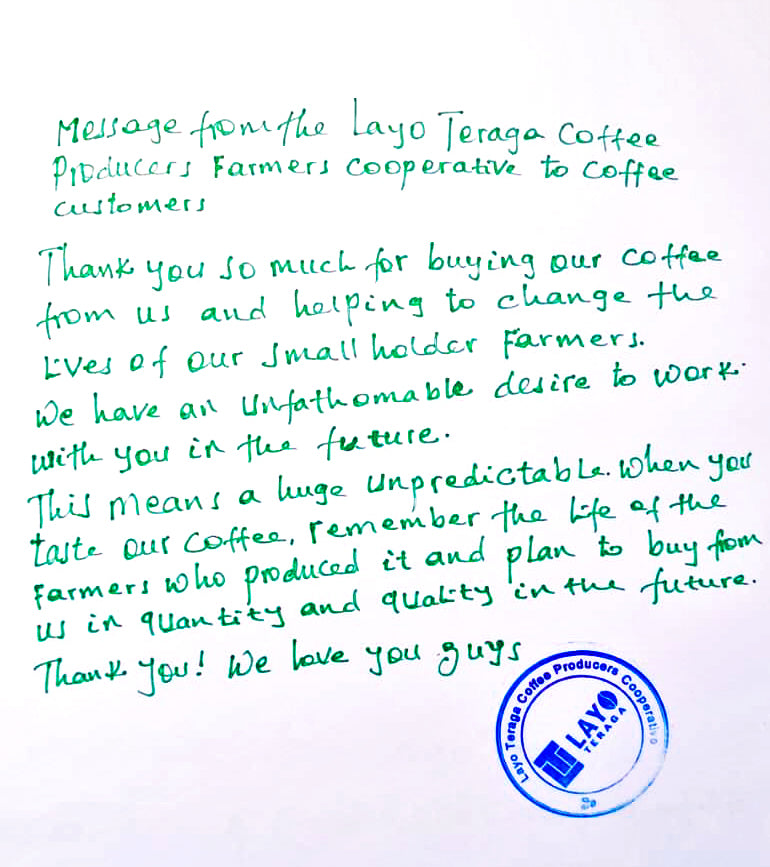 Message from the Layo Teraga Coffee
Producers Farmers Cooperative to Coffee
customers
Thank you so much for buying our coffee
from us and helping to change the
lives of our small holder Farmers.
We have an unfathomable desire to work.
with you in the future.
This means a huge unpredictable. When you
taste our coffee, remember the life of the
farmers who produced it and plan to buy from
us in quantity and quality in the future.
Thank you! We love you guys
Layo Teraga Coffee Producers Cooperative
LAYO
TERAGA